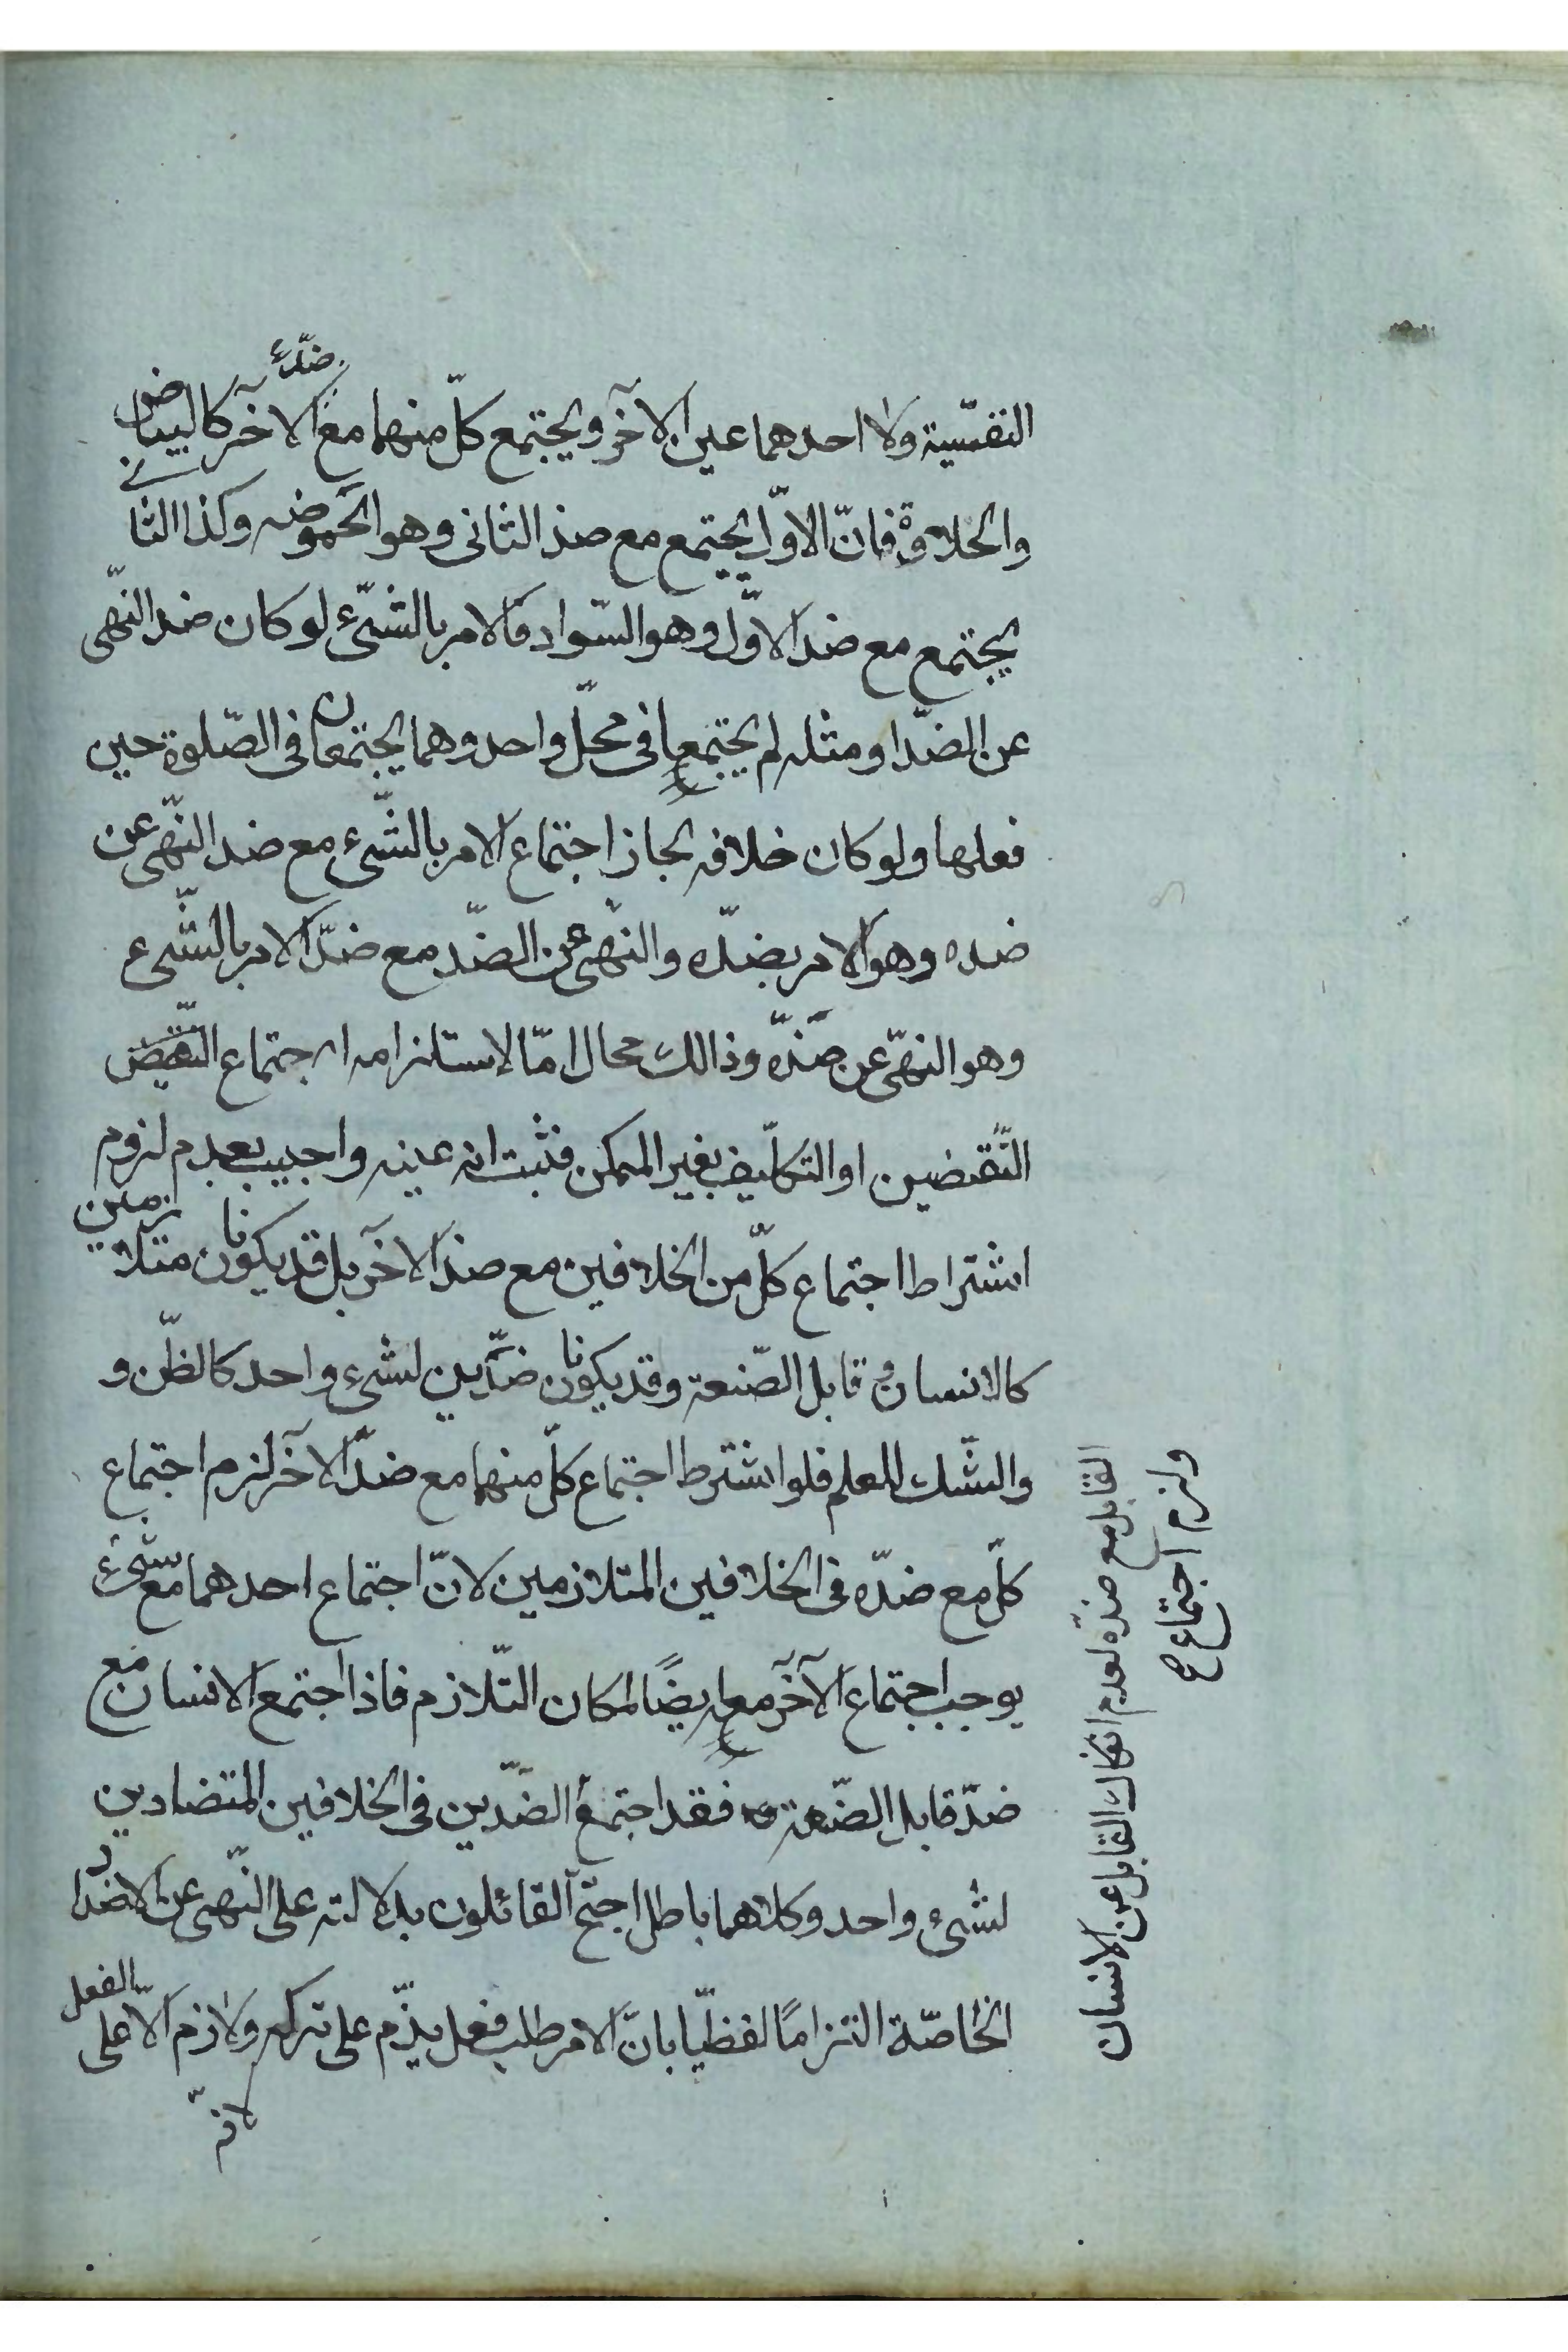 النفسّية ولا احدهما عين الآخر ويجتمع كلّ منهما مع ضدّ الآخر كالبياض
والحلاوة فانّ الاوّل يجتمع مع ضد الثانى وهو الحموضه وكذا الثانے
يجتمع مع ضد الاوّل وهو السّواد فالامر بالشّىء لو كان ضد النّهى
عن الضدّ او مثله لم يجتمعا فى محلّ واحد وهما يجتمعان فى الصّلوة حين
فعلها ولو كان خلافه لجاز اجتماع الامر بالشّىء مع ضد النّهى عن
ضده وهو الامر بضدّه والنّهى عن الضدّ مع ضدّ الامر بالشّىء
وهو النهّى عن ضدّه وذالك محال امّا لإستلزامه اجتماع النّقيض
النّقضين او التكلّيف بغير الممكن فثبت انه عينه واجيب بعدم لزوم
اشتراط اجتماع كلّ من الخلافين مع ضد الآخر بل قد يكونان متلازمين
كالانسان و قابل الصّنعة وقد يكونان ضدّين لشىء واحد كالظّن و
والشّك للعلم فلو اشترط اجتماع كلّ منهما مع ضدّ الآخر لزم اجتماع
كلّ مع ضدّه فى الخلافين المتلازمين لانّ اجتماع احدهما مع شىء
يوجب اجتماع الآخر معه ايضًا لمكان التّلازم فاذا اجتمع الانسان مع
ضدّ قابل الصّنعة فقد اجتمع الضدّين فى الخلافين المتضادين
لشىء واحد وكلاهما باطل احتج القائلون بدلالته على النّهى عن الاضداد
الخاصّة التزامًا لفظيّا بانّ الامر طلب فعل يذّم على تركه ولا ذم الّا على الفعل
لانّه
القابل مع ضدّه لعدم انفكاك القابل عن الانسان
ولزم اجتماع ح